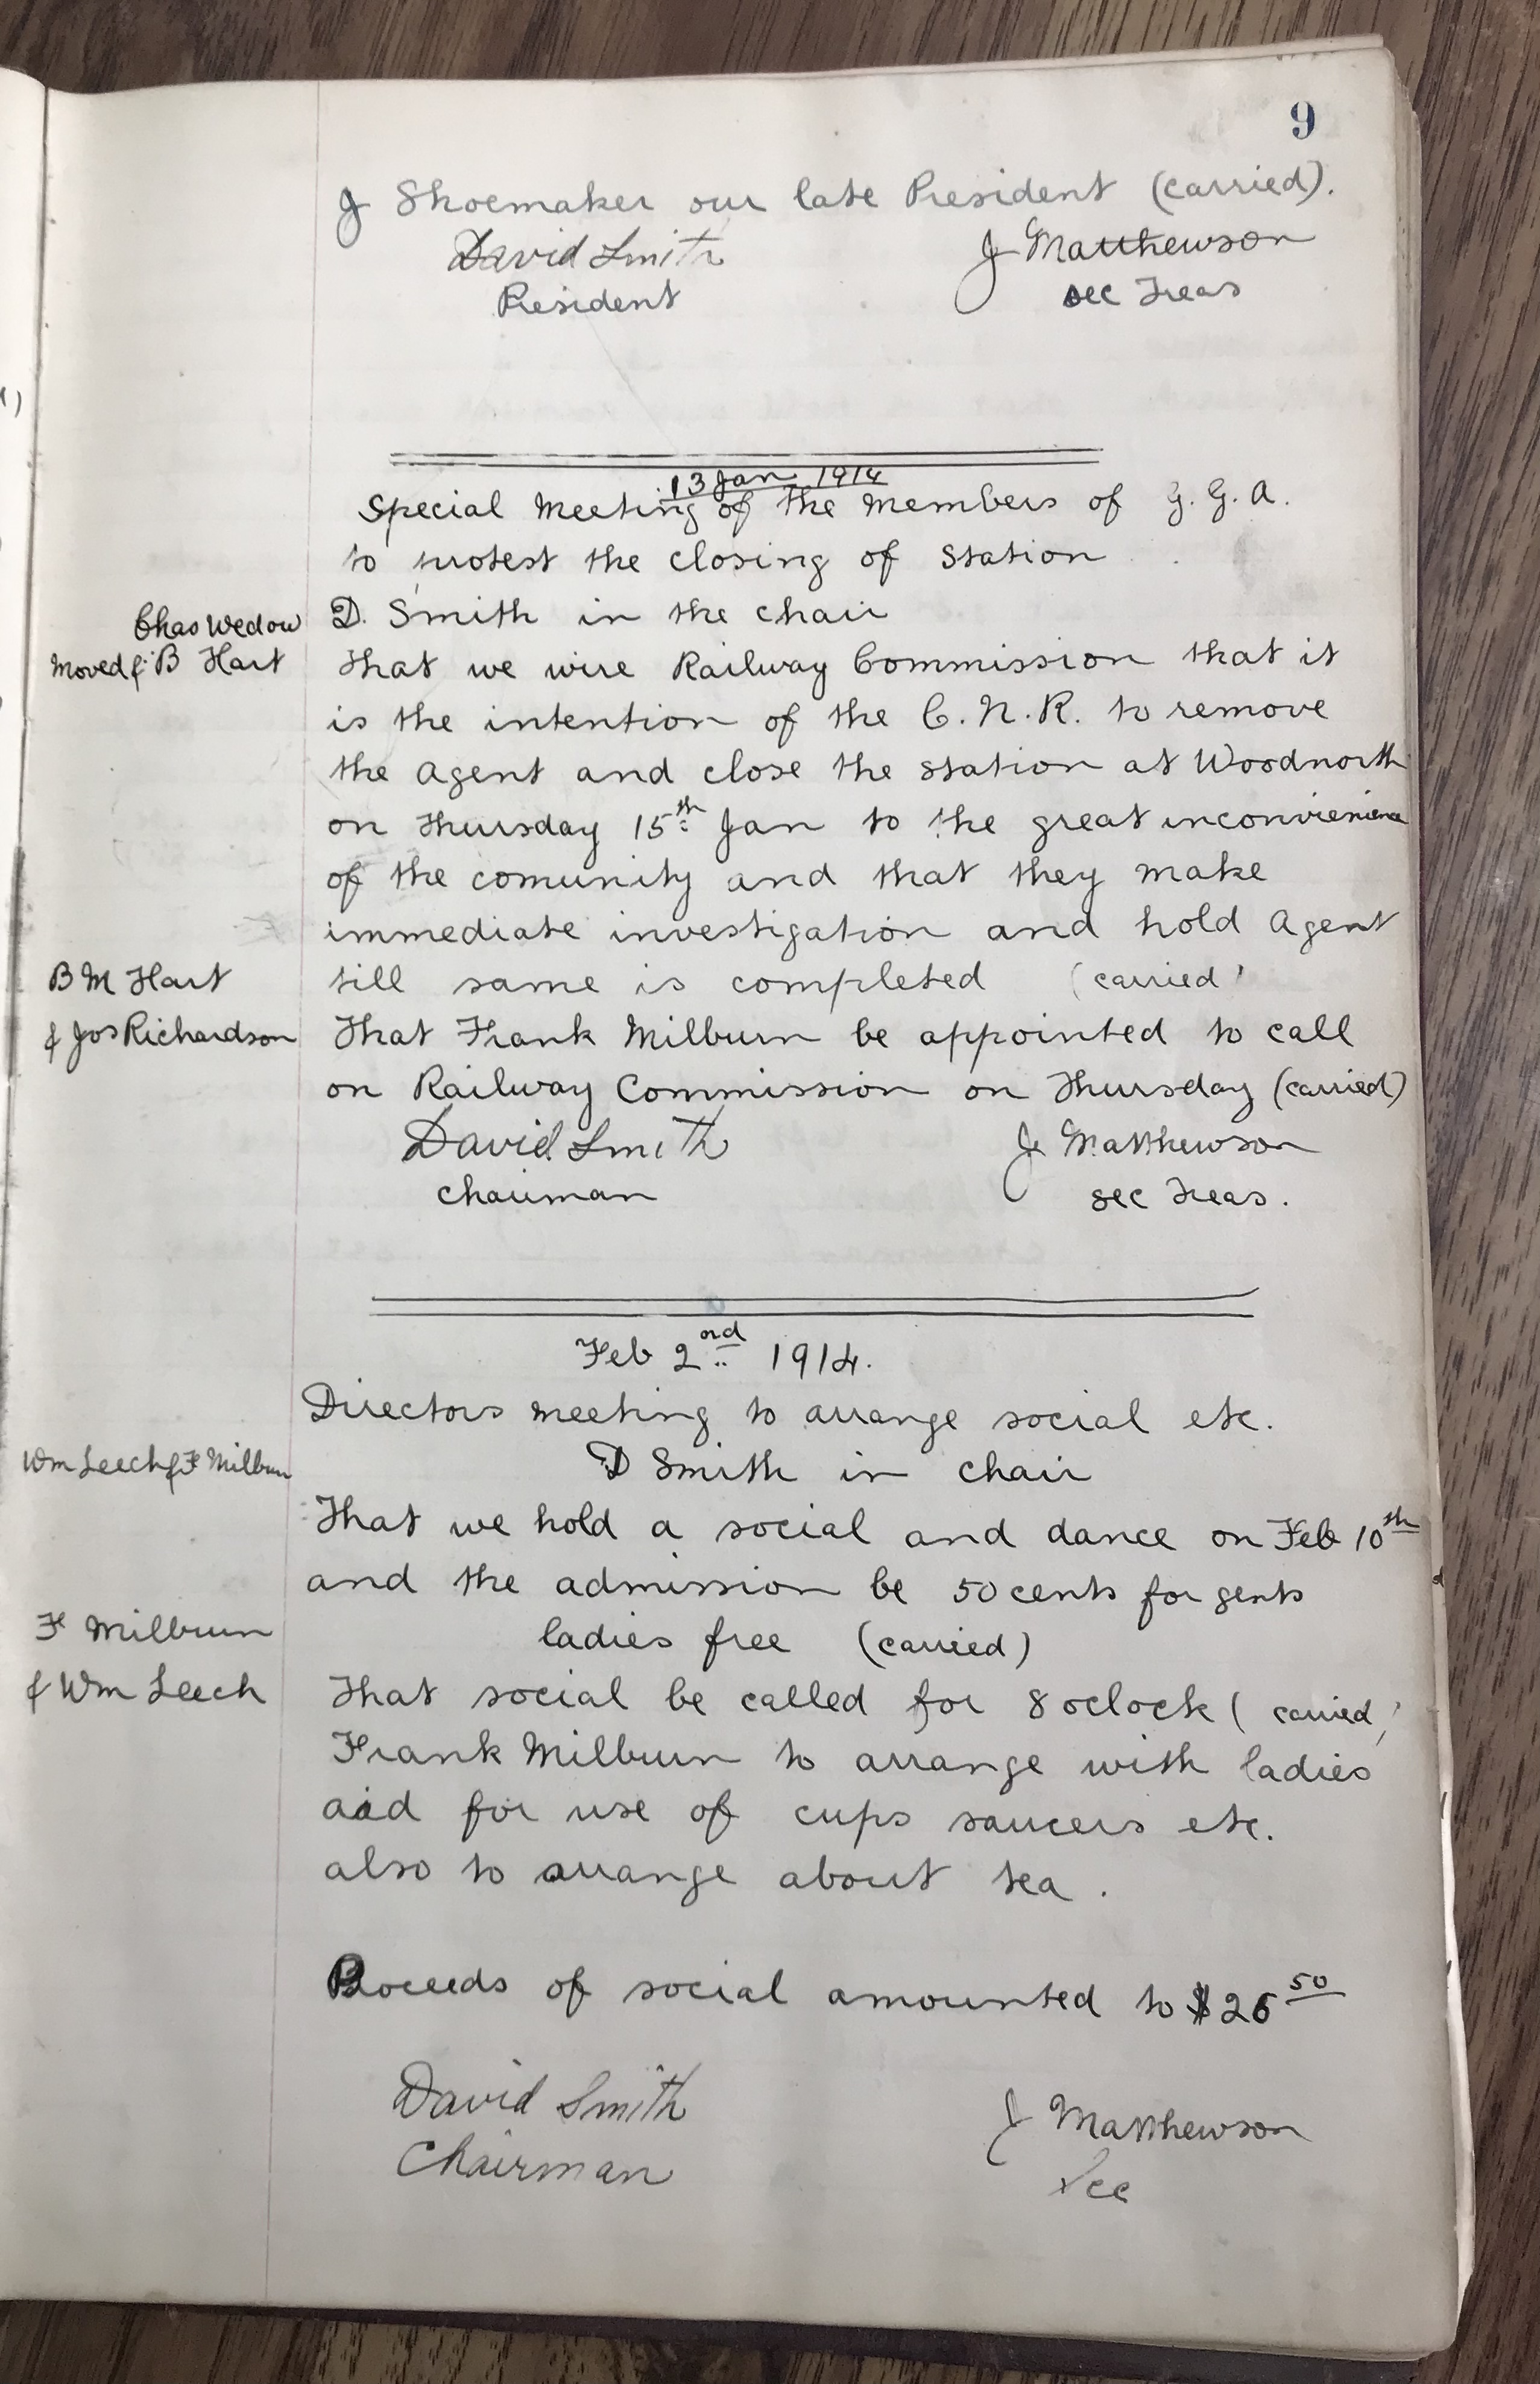 9
J Shoemaker our late President (carried).
David Smith J Matthewson
President sec Treas
13 Jan 1914
Special Meeting of the Members of G. G. A.
to protest the closing of Station
D. Smith in the chair
Chas Wedow
Moved & B Hart That we wire Railway Commission that it
is the intention of the C. N. R. to remove
the Agent and close the station at Woodnorth
on Thursday 15th Jan to the great inconvienience
of the comunity and that they make
immediate investigation and hold Agent
till same is completed (carried)
B M Hart
& Jos Richardson That Frank Milburn be appointed to call
on Railway Commission on Thursday (carried)
David Smith J Matthewson
Chairman sec Treas.
Feb 2nd 1914.
Directors meeting to arrange social etc.
D Smith in chair
Wm Leech & F Milburn
That we hold a social and dance on Feb 10th
and the admission be 50 cents for gents
ladies free (carried)
F Milburn
& Wm Leech That social be called for 8 oclock (carried)
Frank Milburn to arrange with ladies
aid for use of cups saucers etc.
also to arrange about tea.
Proceeds of social amounted to $26 50
David Smith J Matthewson
Chairman Sec